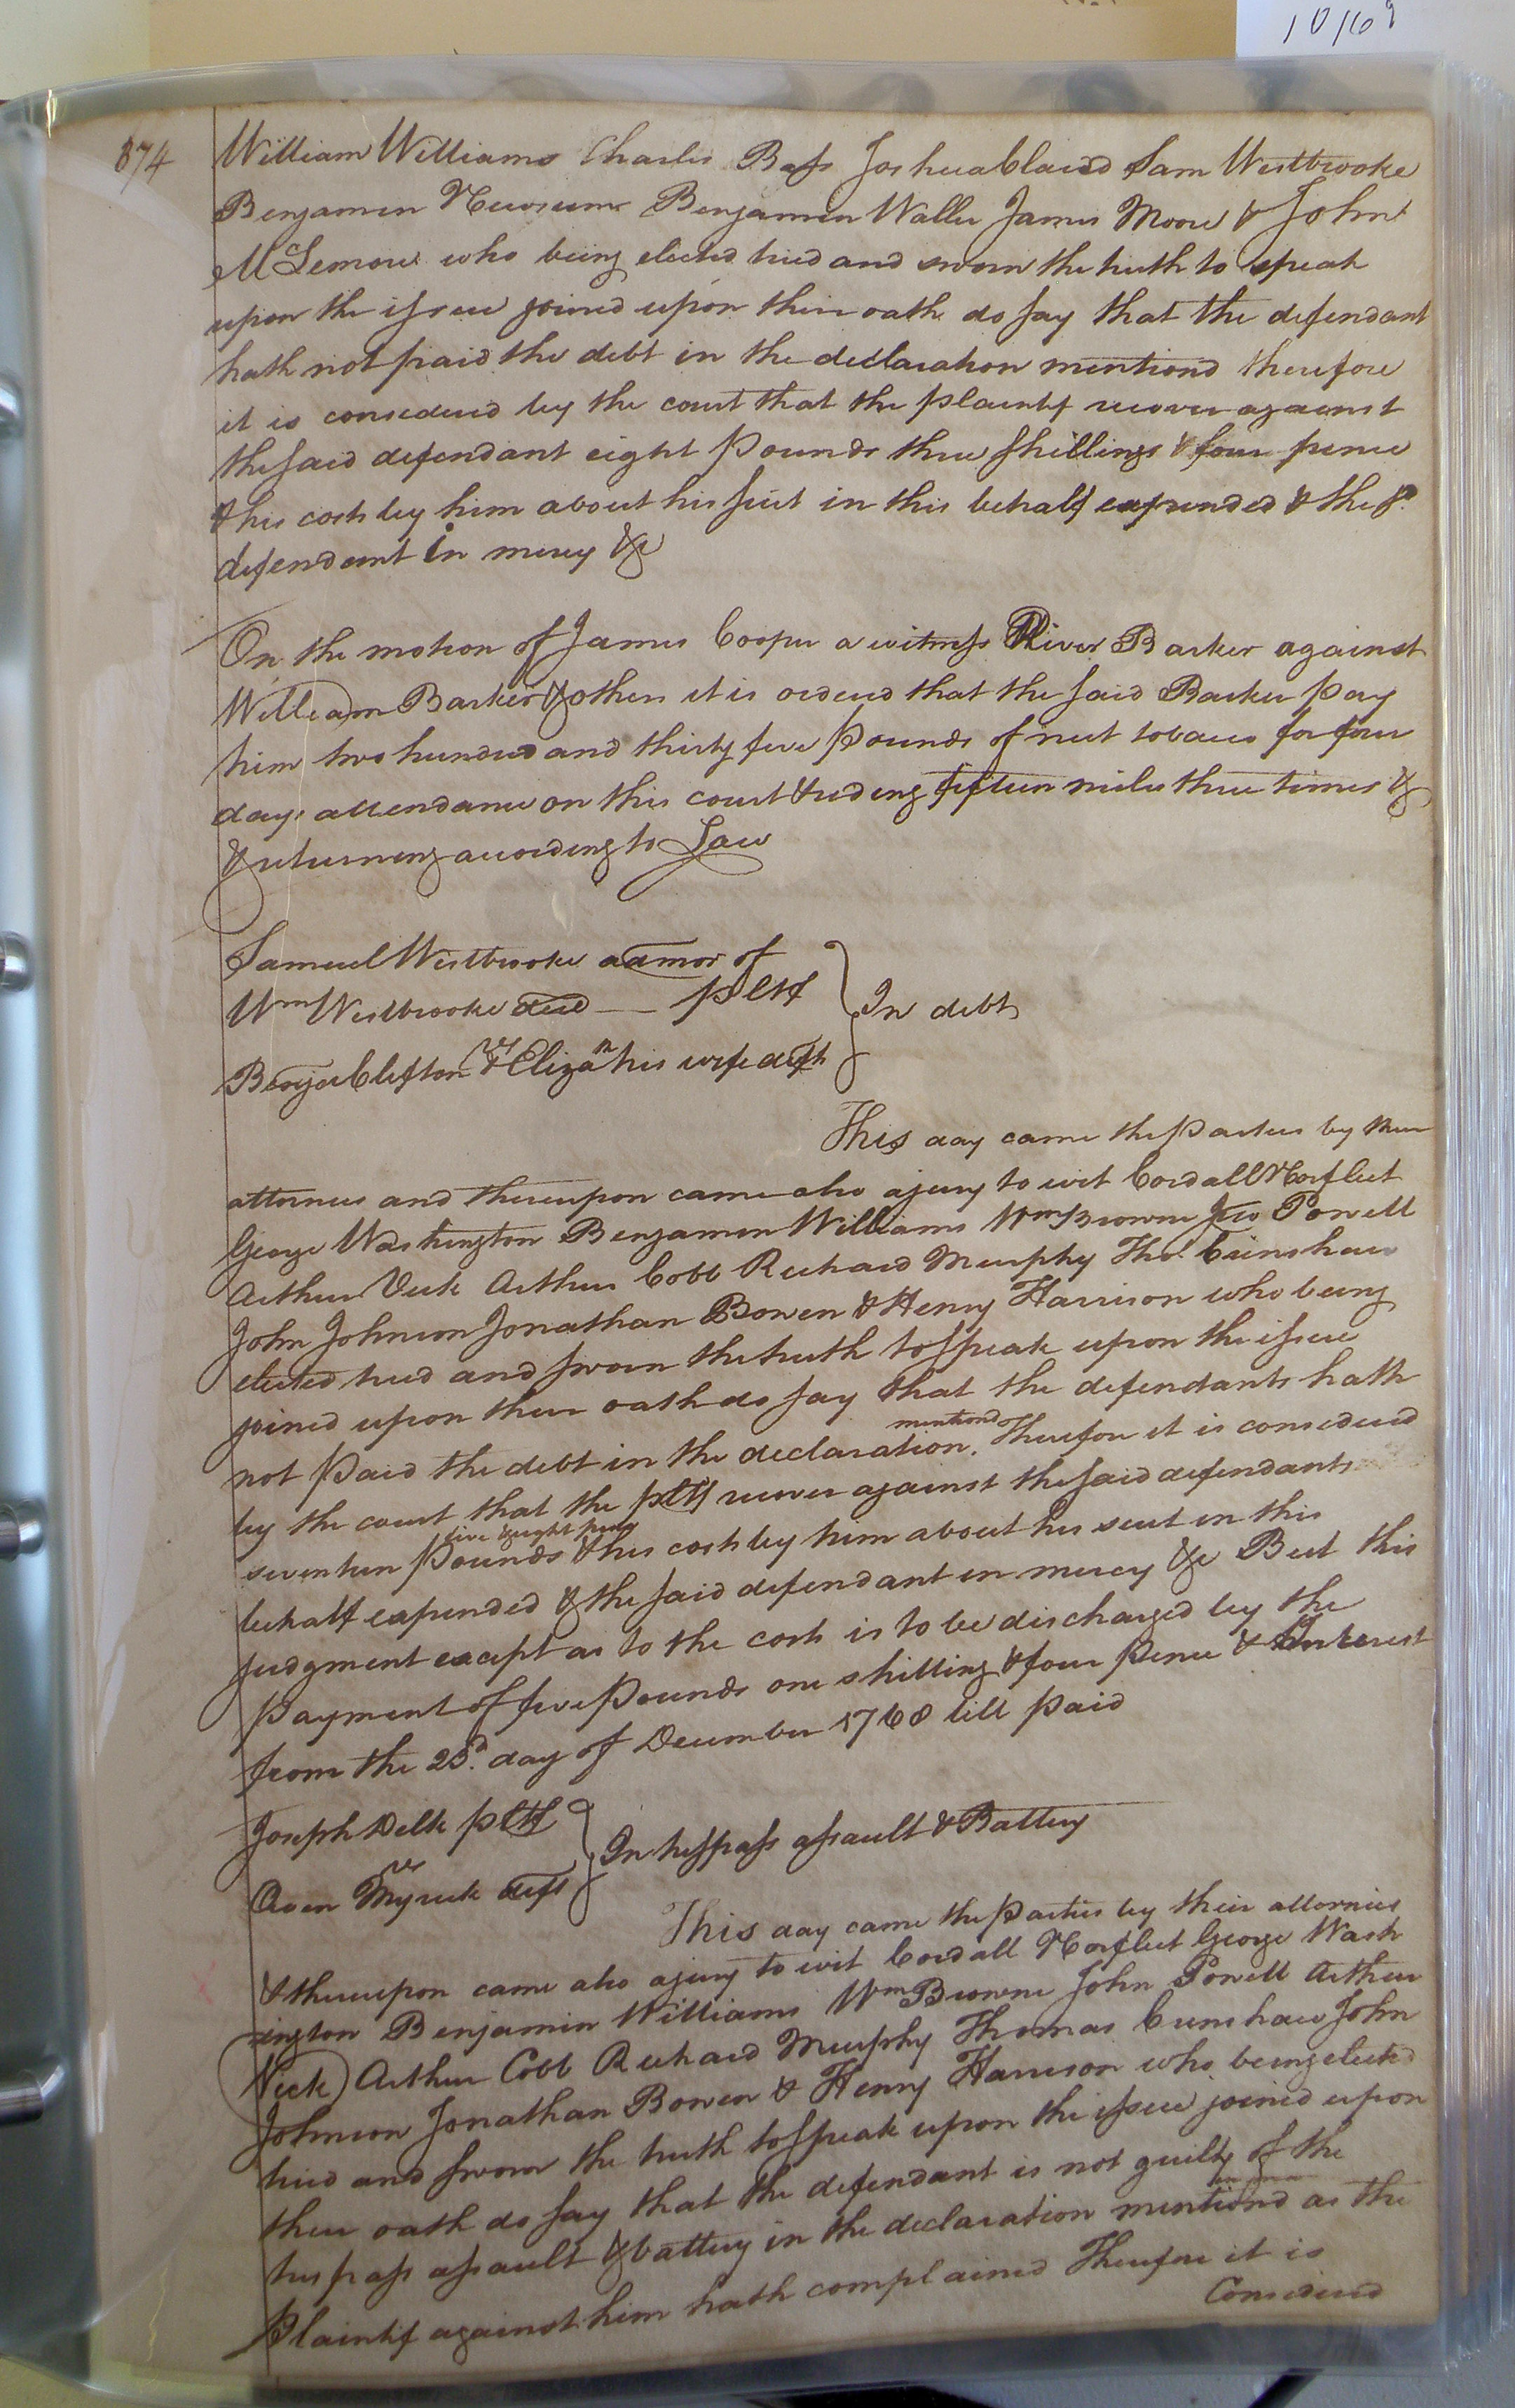 10169
874
William Williams Charles Bass Joshua Claud Sam Westbrooke
Benjamin Newsum Benjamin Waller James Moore & John
McLemore who being elected tried and sworn the truth to speak
upon the issue joined upon their oath do say that the defendant
hath not paid the debt in the declaration mentiond therefore
it is considered by the court that the plaintif recover against
the said defendant eight Pounds three shillings & four pence
& his costs by him about his suit in this behalf expended & the sd.
defendant in mercy &c
On the motion of James Cooper a witness River Barker against
William Barker & others it is ordered that the said Barker pay
him two hundred and thirty five Pounds of nett tobacco for four
days attendance on this court & riding fifteen miles three times &
& returning according to Law
Samuel Westbrooke admor of
Wm Westbrooke decd — pltf
In debt
vs
Benja Clifton & Elizath his wife defts
This day came the Parties by their
attornies and thereupon came also a jury to wit Cordall Norfleet
George Washington Benjamin Williams Wm Browne Jno Powell
Arthur Vick Arthur Cobb Richard Murphy Thos. Crinshaw
John Johnson Jonathan Bowen & Henry Harrison who being
elected tried and sworn the truth to speak upon the issue
joined upon their oath do say that the defendants hath
not Paid the debt in the declaration mentiond Therefore it is considered
by the court that the pltf recover against the said defendants
seventeen Pounds five & eight pence & his costs by him about his suit in this
behalf expended & the said defendant in mercy &c But this
judgment except as to the costs is to be discharged by the
payment of five Pounds one shilling & four Pence & Interest
from the 23d. day of December 1768 till paid
Joseph Delk pltf
In trespass assault & Battery
vs
Owen Myrick deft
This day came the Parties by their attornies
& thereupon came also a jury to wit Cordall Norfleet George Wash
ington Benjamin Williams Wm Browne John Powell Arthur
Vick Arthur Cobb Richard Murphy Thomas Crinshaw John
Johnson Jonathan Bowen & Henry Harrison who being elected
tried and sworn the truth to speak upon the issue joined upon
their oath do say that the defendant is not guilty of the
trespass assault & battery in the declaration mentiond as the
Plaintif against him hath complained Therefore it is
Considered